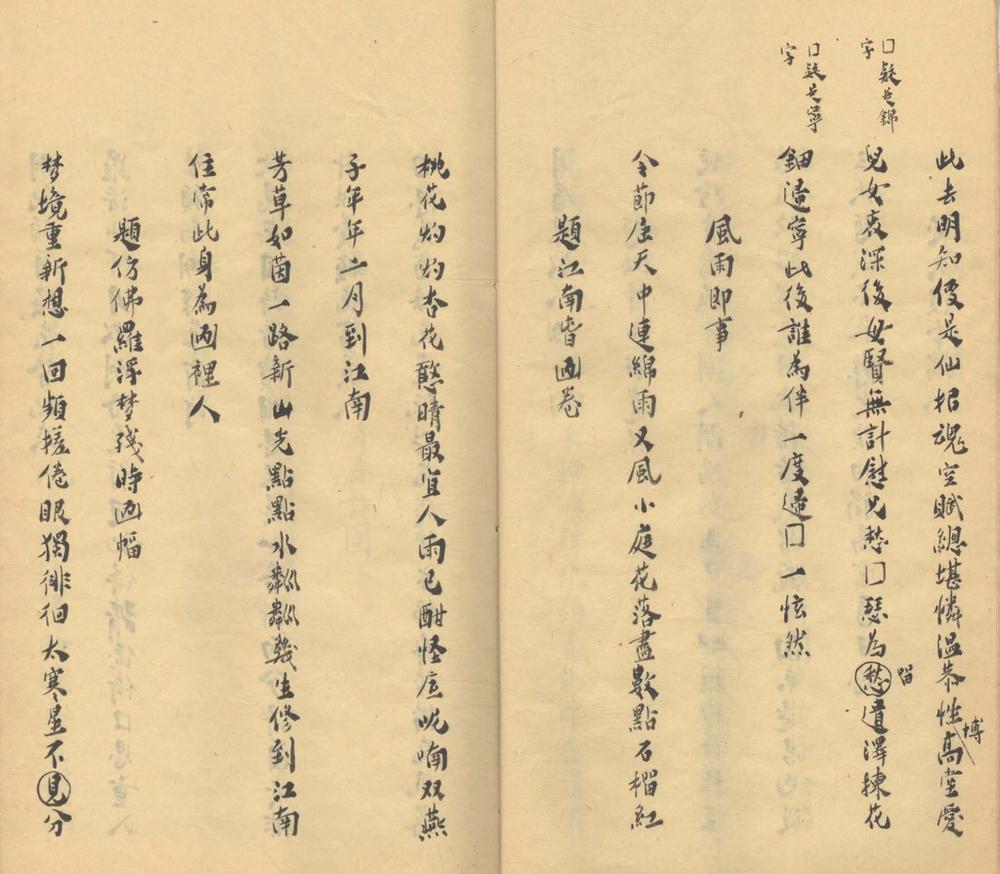 □疑是錦字
□疑是寧字
此去明知便是仙招魂空賦總堪憐溫恭性博高堂愛
兒女衷深後母賢無計慰兄愁□瑟為愁留遺澤揀花
鈿歸寧此後誰為伴一度歸□一怰然
風雨即事
令節届天中連綿雨又風小庭花落盡數點石榴紅
題江南春画卷
桃花灼灼杏花憨晴最宜人雨已酣怪底呢喃双燕
子年年二月到江南
芳草如茵一路新山光點點水粼粼幾生修到江南
住常此身為画裡人
題仿佛羅浮梦残時画幅
梦境重新想一回頻搓倦眼獨徘徊太寒星不見分